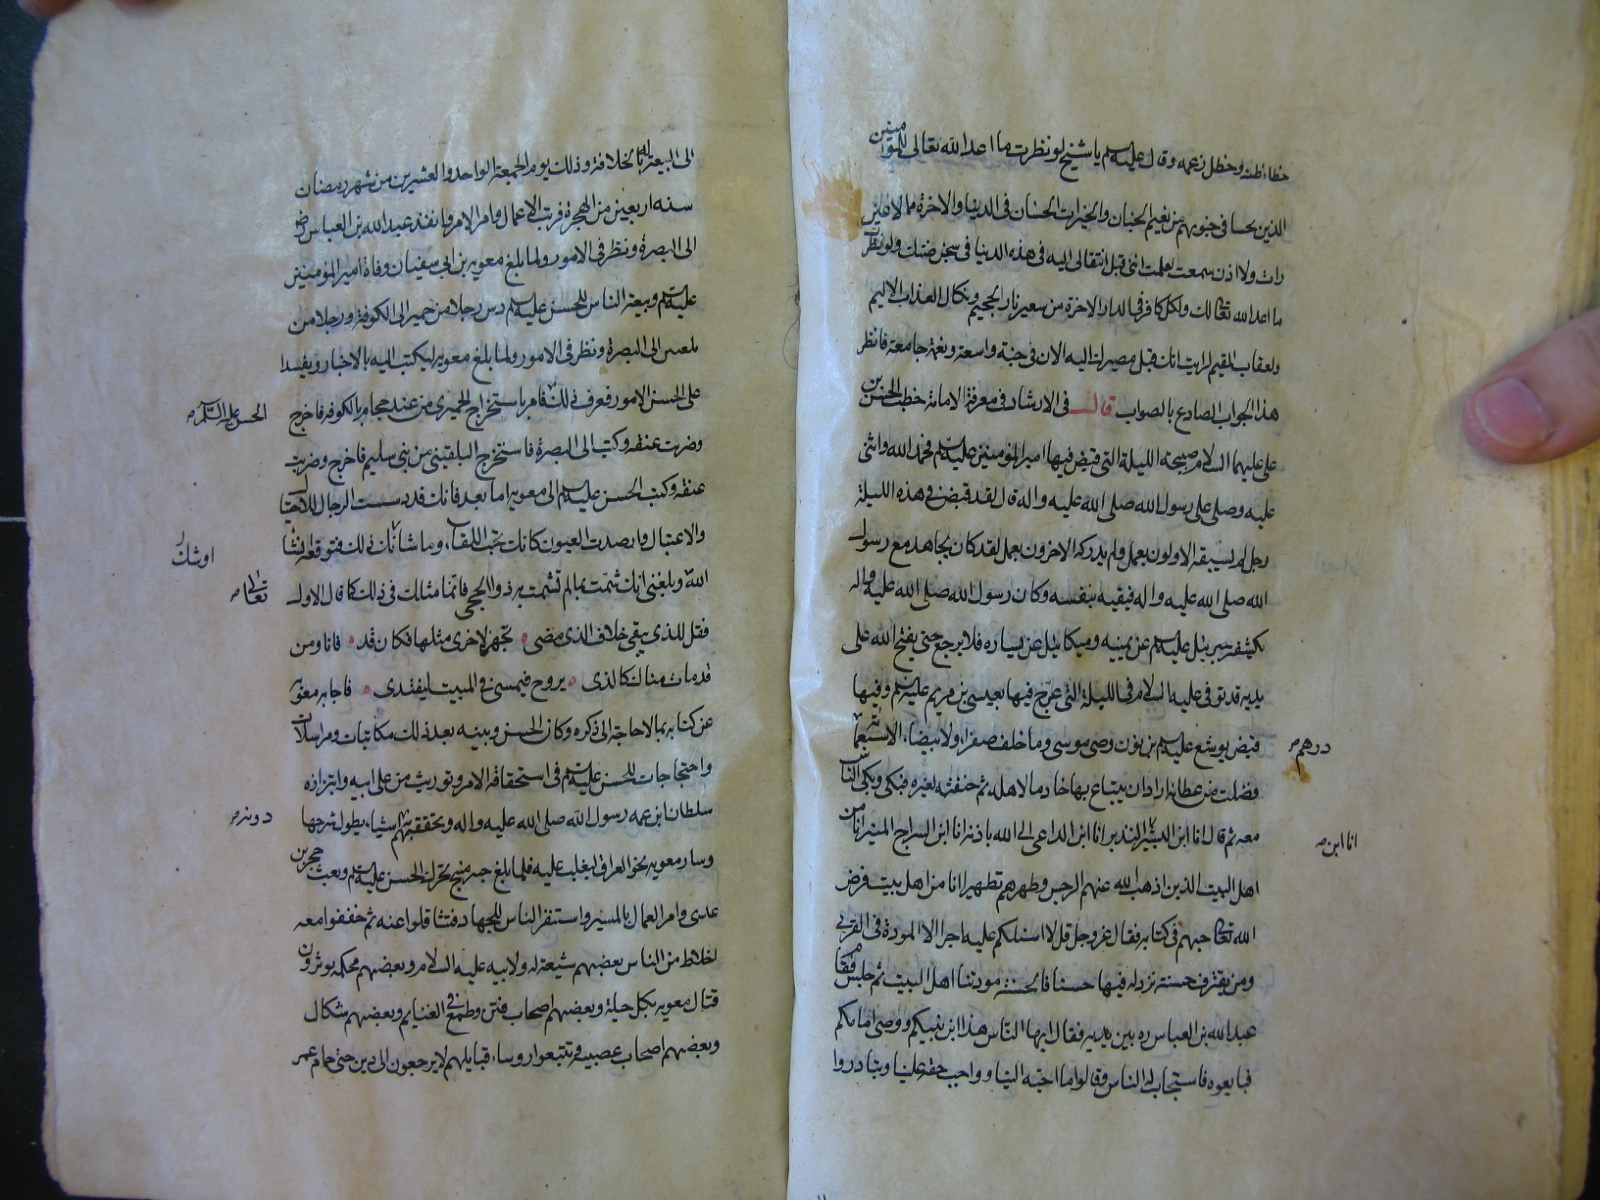 وخطل زعمه وقال عليه السلم يا شيخ لو نظرت ما اعد الله تعالى للمؤمنين
الذين في جنوبهم من نعيم الجنان والخيرات الحسان في الدنيا والاخرة مما لا عين
رات ولا اذن سمعت لعلمت انني قبل انتقالى اليه في هذه الدنيا في سجن ضنك ولو نظرت
ما اعد الله تعالى لك ولكل كافر في الدار الاخرة من سعير نار الجحيم ونكال العذاب الاليم
ولعقاب المقيم لرايت انك قبل مصيرك اليه الان في جنة واسعة ونعمة جامعة فانظر
هذا الجواب الصادع بالصواب قال في الارشاد في معرفة الامامة خطب الحسن بن
على عليهما السلام صبيحة الليلة التي قبض فيها امير المؤمنين عليه السلم فحمد الله واثنى
عليه وصلى على رسول الله صلى الله عليه واله قال لقد قبض في هذه الليلة
رجل لم يسبقه الاولون بعمل ولم يدركه الاخرون بعمل لقد كان يجاهد مع رسول
الله صلى الله عليه واله فيقيه بنفسه وكان رسول الله صلى الله عليه واله
يكنفه جبرئيل عليه السلم عن يمينه وميكائيل عن يساره فلا يرجع حتى يفتح الله على
يديه قد توفى عليه السلام في الليلة التي عرج فيها بعيسى بن مريم عليه السلم وفيها
قبض يوشع عليه السلم بن نون وصى موسى وما خلف صفراء ولا بيضاء الا سبعمائة
درهم
فضلت من عطائه اراد ان يبتاع بها خادما لاهله ثم خنقته العبره فبكى وبكى الناس
معه ثم قال انا ابن البشير النذير انا ابن الداعى الى الله باذنه انا ابن السراج المنير انا من
انا ابن
اهل البيت الذين اذهب الله عنهم الرجس وطهرهم تطهيرا انا من اهل بيت فرض
الله تعالى حبهم في كتابه فقال عز وجل قل لا اسئلكم عليه اجرا الا المودة في القربى
ومن يقترف حسنة نزد له فيها حسنا فالحسنة مودتنا اهل البيت ثم جلس فقام
عبد الله بن العباس ره بين يديه فقال ايها الناس هذا ابن نبيكم ووصى امامكم
فبايعوه فاستجاب له الناس وقالوا ما احبه الينا وواجب حقه علينا وبنادروا
الى البيعة له بالخلافة وذلك يوم الجمعة الواحد والعشرين من شهر رمضان
سنه اربعين من الهجرة فرتب الاعمال وامر الامراء وانفذ عبد الله بن العباس رض
الى البصرة ونظر في الامور ولما بلغ معويه بن ابي سفيان وفاة امير المؤمنين
عليه السلم وبيعة الناس للحسن عليه السلم دس رجلا من حمير الى الكوفة ورجلا من
الى البصرة ونظر في الامور ولما بلغ معويه ليكتب اليه بالاخبار ويفسدا
على الحسن الامور فعرف ذلك فامر باستخراج الحميرى من عند حجام بالكوفه فاخرج
الحسن عليه السلم
وضربت عنقه وكتب الى البصرة فاستخرج البلقينى من بنى سليم فاخرج وضربت
عنقه وكتب الحسن عليه السلم الى معويه اما بعد فانك قد دسست الرجال للاحتيال
والاغتيال وارصدت العيون كانك تحب اللقاء وما شانك ذلك فتوقعه انشاء
اوشك
الله وبلغنى انك شمت بما لم تشمت به ذو الحجى فانما مثلك في ذلك كما قال الاول
تعالى
فقل للذى يبقى خلاف الذى مضى تجهز لاخرى مثلها فكان قد فانا ومن
قد مات منا لكالذى يروح فيمسى في المبيت ليفتدى فاجابه معويه
عن كتابه بما لا حاجة الى ذكره وكان الحسن وبينه بعد ذلك مكاتبات ومراسلات
واحتجاجات للحسن عليه السلم في استحقاقه الامر وتوريث من على ابيه وابتزازه
سلطان ابن عمه رسول الله صلى الله عليه واله وتحققهم اشياء يطول شرحها
دونه
وسار معويه نحو العراق ليغلب عليه فلما بلغ جسر منبج تحرك الحسن عليه السلم وبعث حجر بن
عدى وامر العمال بالمسير واستنفر الناس للجهاد فتثاقلوا عنه ثم خففوا معه
اخلاط من الناس بعضهم شيعة له ولابيه عليه السلام وبعضهم محكمه يوثرون
قتال معويه بكل حيلة وبعضهم اصحاب فتن وطمع في الغنايم وبعضهم شكاك
وبعضهم اصحاب عصبيه تتبعوا روساء قبايلهم لا يرجعون الى دين حتى